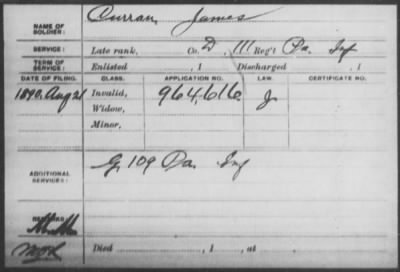 NAME OF SOLDIER: Curran, James
SERVICE: Late rank, Co. D, 111 Reg't Pa. Inf
TERM OF SERVICE: Enlisted , 1 Discharged , 1
DATE OF FILING. CLASS. APPLICATION NO. LAW. CERTIFICATE NO.
1890. Aug 21 Invalid, 964,616. J.
Widow,
Minor,
ADDITIONAL SERVICES: G 109 Pa. Inf
REMARKS:
Died , 1 , at .